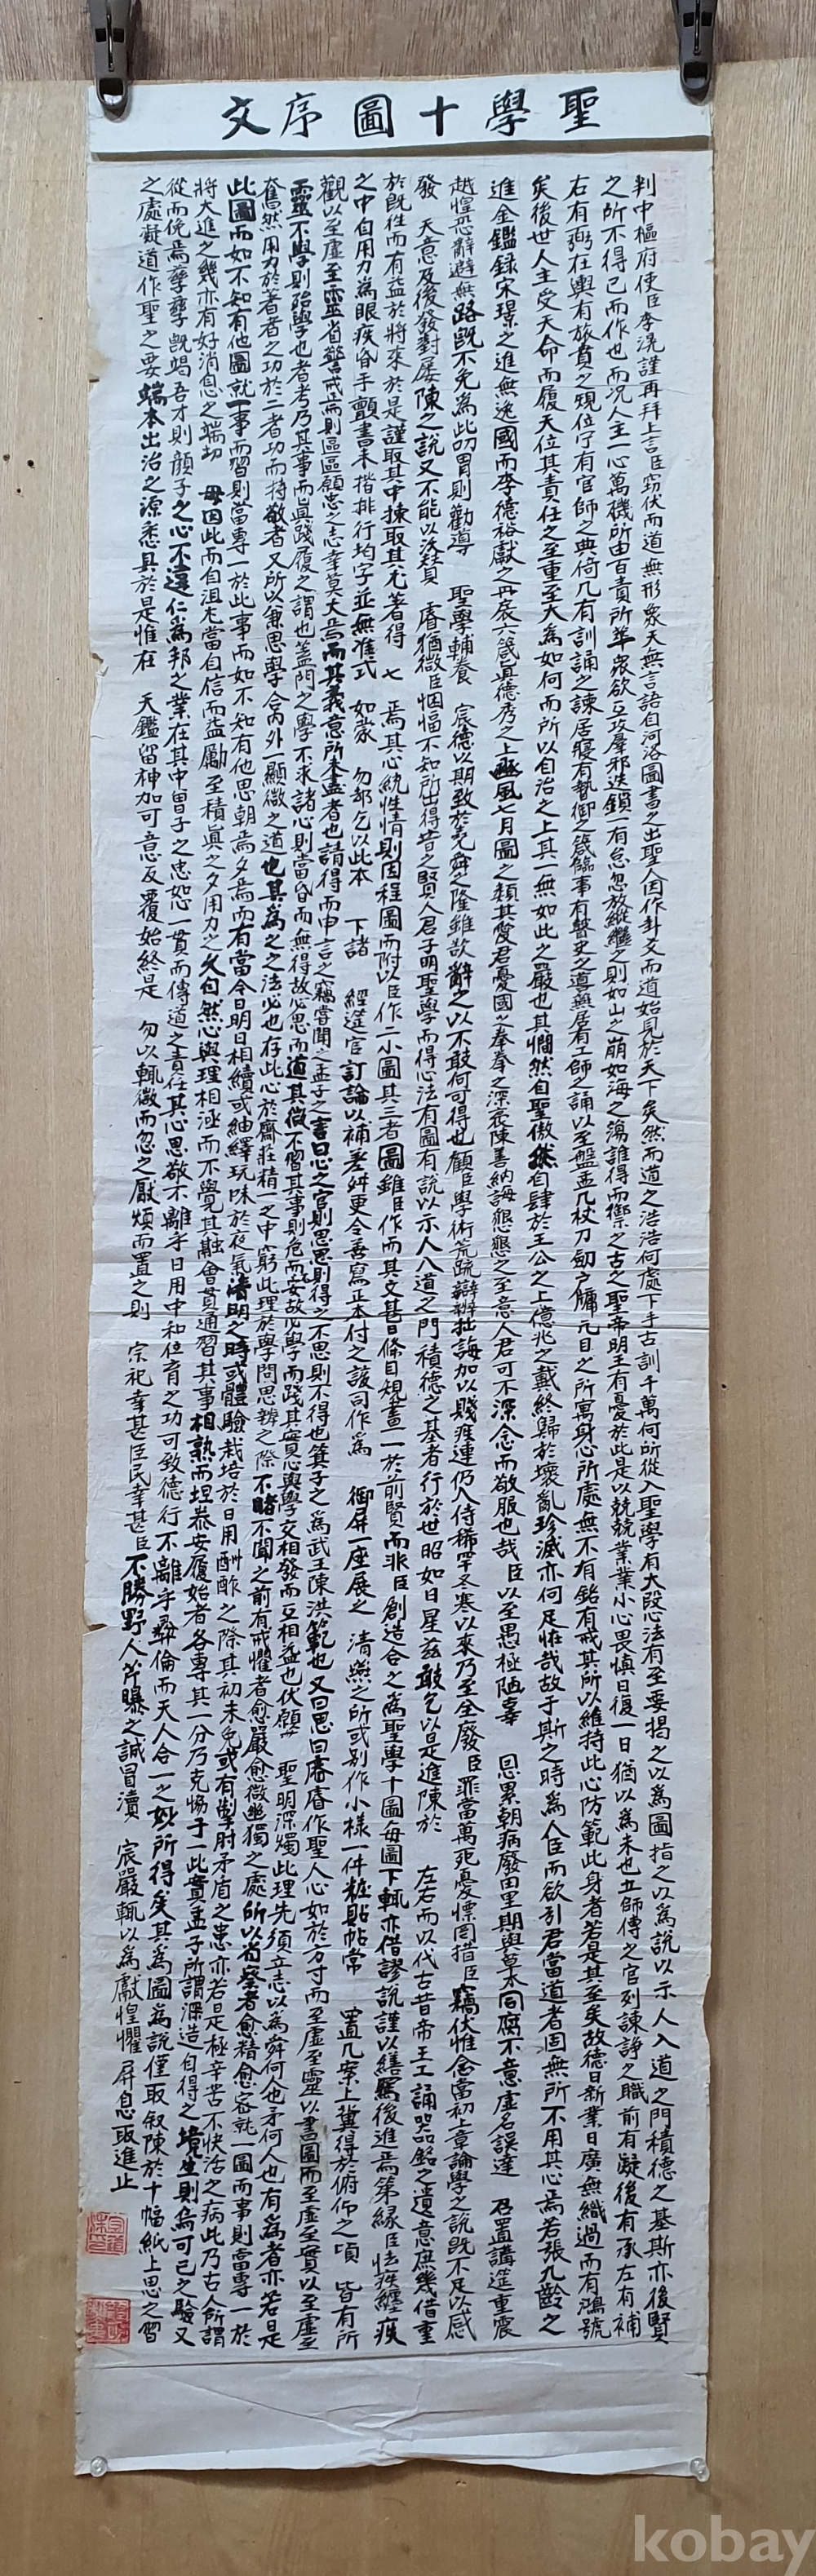 聖學十圖序文
判中樞府使臣李滉謹再拜上言臣竊伏而道無形象天無言語自河洛圖書之出聖人因作卦爻而道始見於天下矣然而道之浩浩何處下手古訓千萬何所從入聖學有大段心法有至要揭之以為圖指之以為說以示人入道之門積德之基斯亦後賢
之所不得已而作也而況人主一心萬機所由百責所萃衆欲互攻羣邪迭鎖一有怠忽放縱繼之則如山之崩如海之蕩誰得而禦之古之聖帝明王有憂於此是以兢兢業業小心畏慎日復一日猶以為未也立師傅之官列諫諍之職前有凝後有承左有補
右有弼在輿有旅賁之規位宁有官師之典倚几有訓誦之諫居寢有暬御之箴臨事有瞽史之導燕居有工師之誦以至盤盂几杖刀劒戶牖凡目之所寓身心所處無不有銘有戒其所以維持此心防範此身者若是其至矣故德日新業日廣無纖過而有鴻號
矣後世人主受天命而履天位其責任之至重至大為如何而所以自治之上其一無如此之嚴也其憪然自聖傲然自肆於王公之上億兆之戴終歸於壞亂殄滅亦何足恠哉故于斯之時為人臣而欲引君當道者固無所不用其心焉若張九齡之
進金鑑錄宋璟之進無逸國而李德裕獻之丹扆六箴眞德秀之上豳風七月圖之類其愛君憂國之拳拳之深衷陳善納誨懇懇之至意人君可不深念而敬服也哉臣以至愚極陋辜 恩累朝病廢田里期與草木同腐不意虛名誤達 召置講筵重震
越惶恐辭避無路旣不免為此叨冒則勸導 聖學輔養 宸德以期致於堯舜之隆雖欲辭之以不敢何可得也顧臣學術荒疏辯辭拙誨加以賤疾連仍入侍稀罕冬寒以來乃至全廢臣罪當萬死憂慄罔措臣竊伏惟念當初上章論學之說旣不足以感
發 天意及後發對屢陳之說又不能以沃贊 睿猶微臣悃愊不知所出得昔之賢人君子明聖學而得心法有圖有說以示人入道之門積德之基者行於世昭如日星茲敢乞以是進陳於 左右而以代古昔帝王工誦器銘之遺意庶幾借重
於旣往而有益於將來於是謹取其中揀取其尤著得 七 焉其心統性情則因程圖而附以臣作二小圖其三者圖雖臣作而其文甚日條目規畫一於前賢而非臣創造合之為聖學十圖每圖下輒亦借謬說謹以繕寫後進焉第緣臣怯疾纏疾
之中自用力為眼疾昏手顫書未楷排行均字並無准式 如蒙 勿却乞以此本 下諸 經筵官訂論以補差舛更令善寫正本付之該司作為 御屏一座展之 清燕之所或別作小樣一件粧貼帖常 置几案上冀得於俯仰之頃 皆有所
觀以至虛至靈省警戒焉則區區願忠之志幸莫大焉而其義意所未盡者也請得而申言之竊嘗聞之孟子之言曰心之官則思思則得之不思則不得也箕子之為武王陳洪範也又曰思曰睿睿作聖人心如於方寸而至虛至靈以書圖而至虛至實以至虛至
靈不學則殆學也者考乃其事而眞踐履之謂也蓋門之學不求諸心則當昏而無得故必思而道其微不習其事則危而不安故必學而踐其實思與學交相發而互相益也伏願 聖明深燭此理先須立志以為舜何人也予何人也有為者亦若是
奮然用力於著者之功於二者功而持敬者又所以兼思學合內外一顯微之道也其為之之法必也存此心於齋莊精一之中窮此理於學問思辨之際不睹不聞之前有戒懼者愈嚴愈微幽獨之處所以省察者愈精愈密就一圖而事則當專一於
此圖而如不知有他圖就一事而習則當專一於此事而如不知有他思朝焉夕焉而有當今日明日相續或紬繹玩味於夜氣淸明之時或體驗栽培於日用酬酢之際其初未免或有掣肘矛盾之患亦若是極辛苦不快活之病此乃古人所謂
將大進之幾亦有好消息之端切 毋因此而自沮尤當自信而益勵至積眞之夕用力之久自然心與理相涵而不覺其融會貫通習其事相熟而坦泰安履始者各專其一分乃克協于一此實孟子所謂深造自得之境生則烏可已之驗又
從而俛焉孳孳旣竭吾才則顏子之心不違仁而為邦之業在其中曾子之忠恕一貫而傳道之責任其心思敬不離乎日用中和位育之功可致德行不離乎彜倫而天人合一之妙所得矣其為圖為說僅取叙陳於十幅紙上思之習
之處凝道作聖之要端本出治之源悉具於是惟在 天鑑留神加可意反覆始終是 勿以輒微而忽之厭煩而置之則 宗祀幸甚臣民幸甚臣不勝野人芹曝之誠冒瀆 宸嚴輒以為獻惶懼屏息取進止
kobay